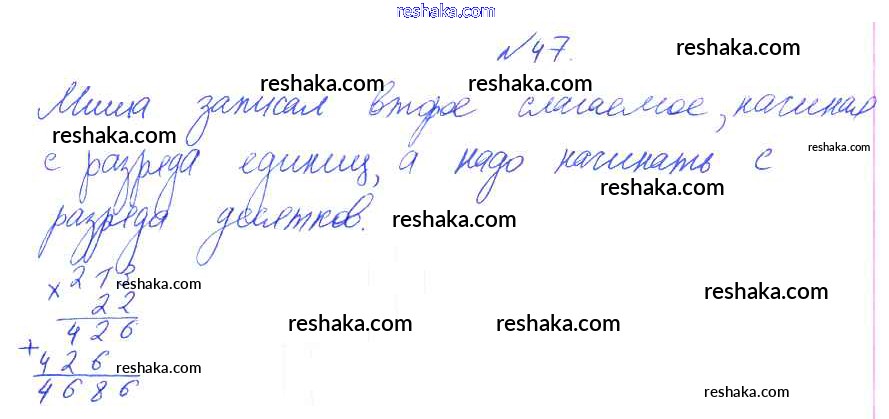 reshaka.com
№47. reshaka.com
reshaka.com reshaka.com
Миша записал второе слагаемое, начиная
reshaka.com
с разряда единиц, а надо начинать с reshaka.com
reshaka.com
разряда десятков. reshaka.com
× 213 reshaka.com
22 reshaka.com
426 reshaka.com reshaka.com
+
426 reshaka.com
4686 reshaka.com